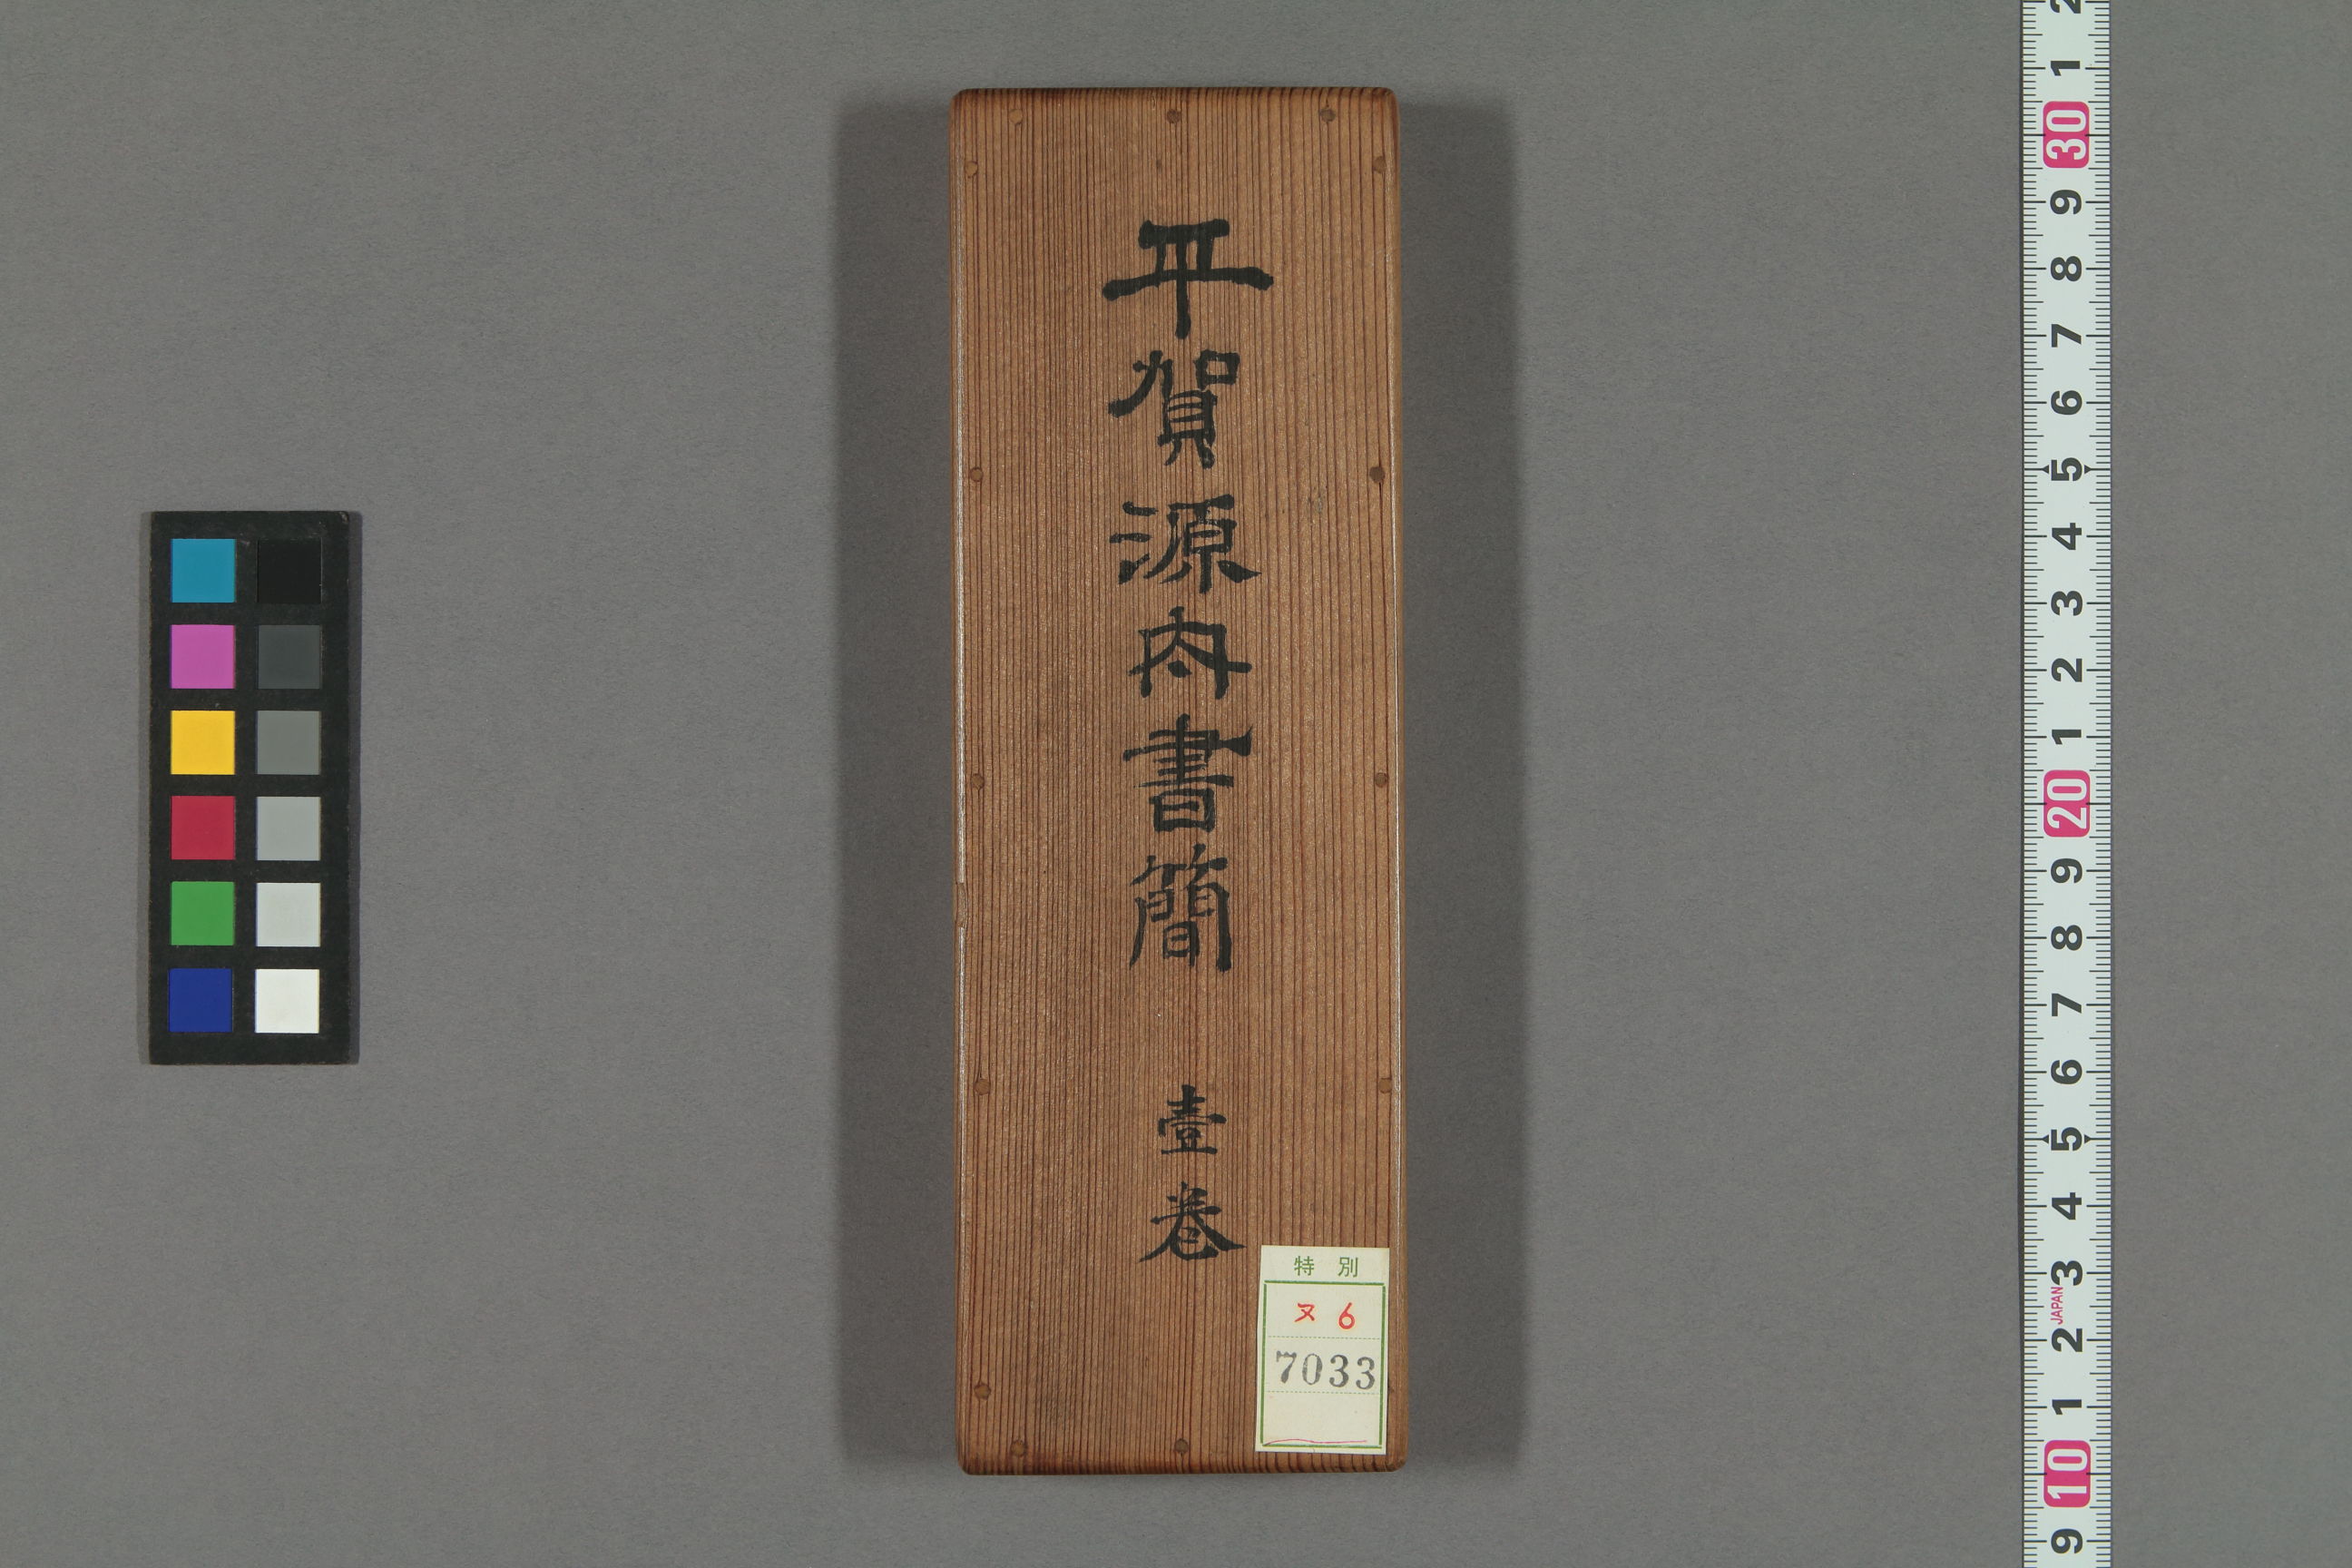 平賀源内書簡 壹卷
特別
ヌ6
7033
2
1
30
9
8
7
6
5
4
3
2
1
20
9
8
7
6
5
4
3
JAPAN
2
1
10
9